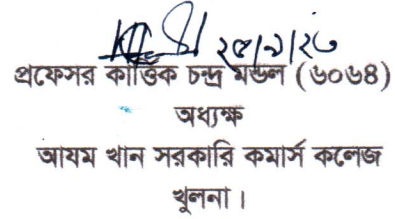 ২৫/৯/২৩
প্রফেসর কার্ত্তিক চন্দ্র মন্ডল (৬০৬৪)
অধ্যক্ষ
আযম খান সরকারি কমার্স কলেজ
খুলনা।